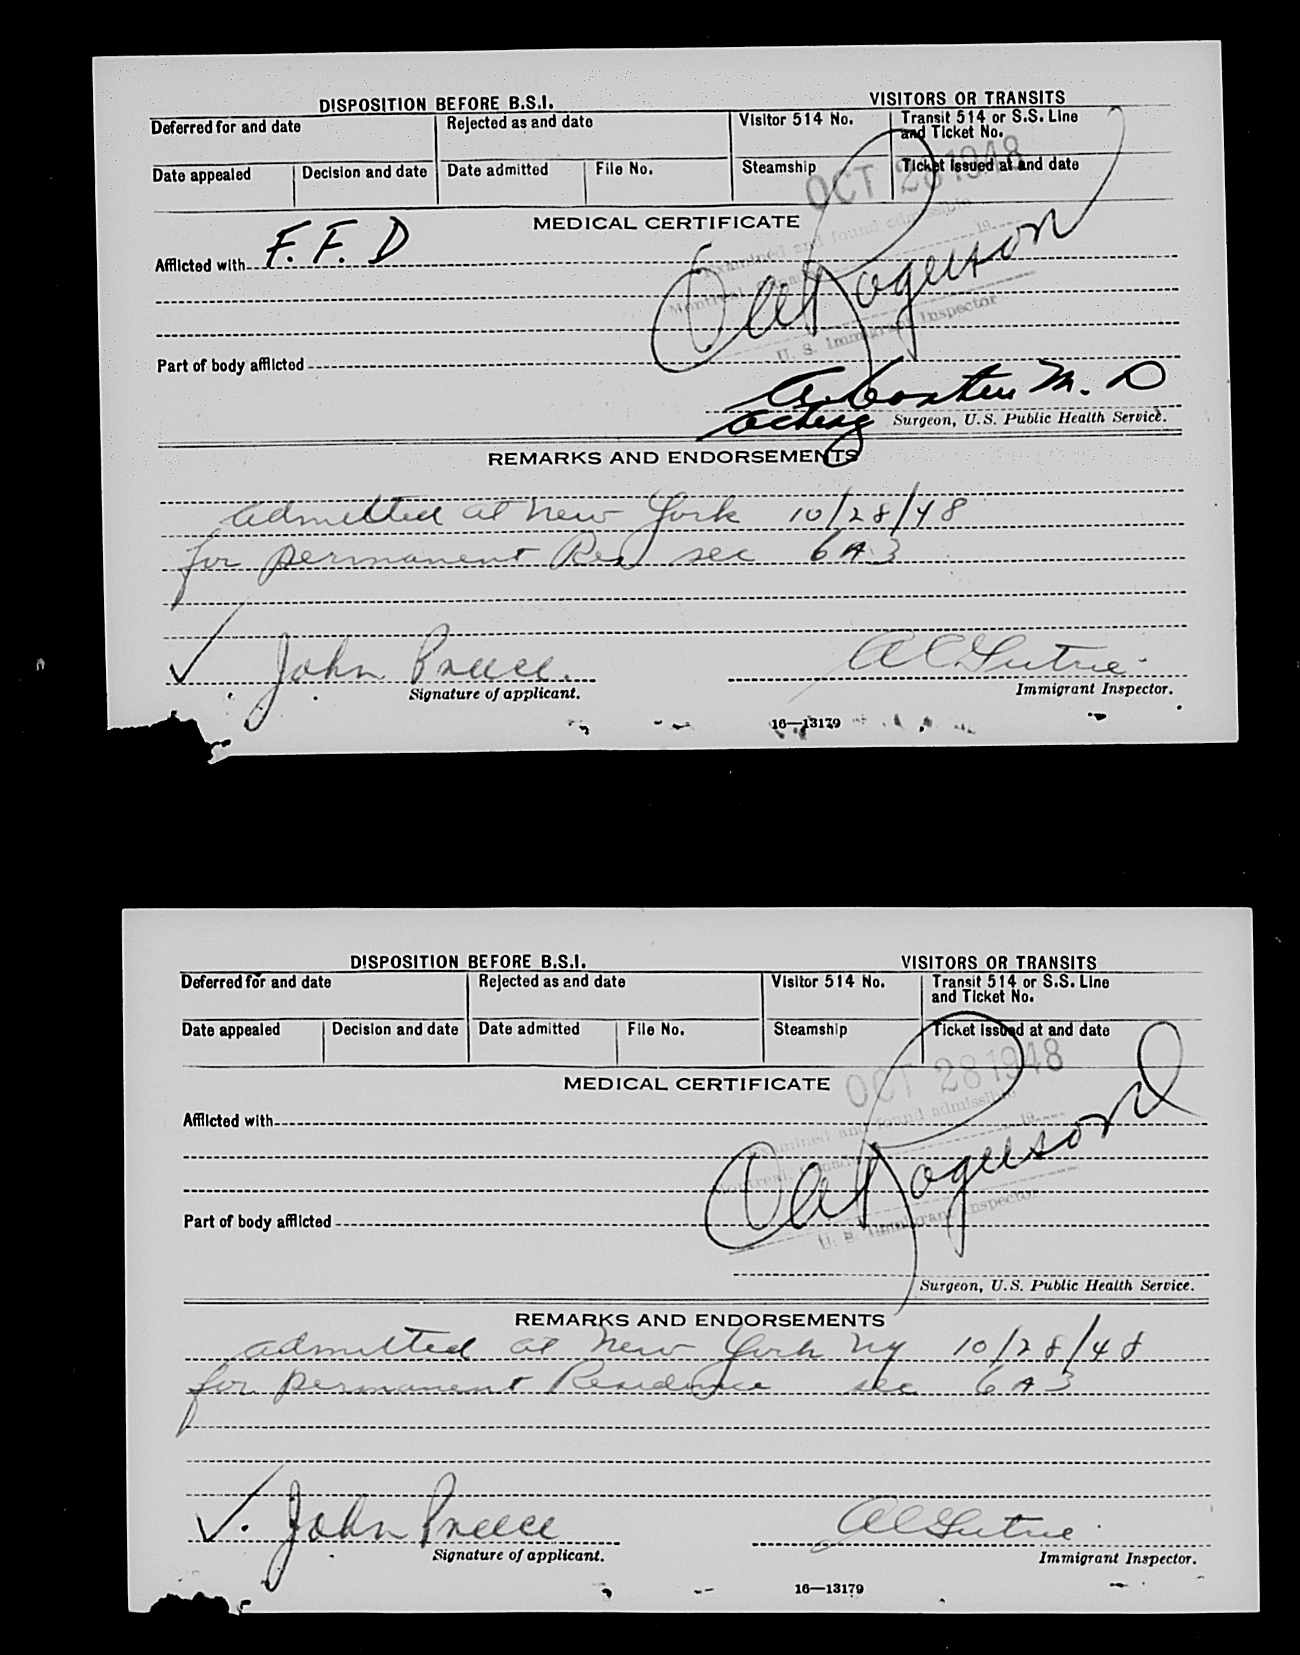 DISPOSITION BEFORE B.S.I. VISITORS OR TRANSITS
Deferred for and date Rejected as and date Visitor 514 No. Transit 514 or S.S. Line
and Ticket No.
Date appealed Decision and date Date admitted File No. Steamship Ticket issued at and date
OCT 28 1948
MEDICAL CERTIFICATE
Examined and found admissible
Afflicted with F. F. D
19
Montreal, Canada
U. S. Immigrant Inspector
Rogerson
Part of body afflicted
M. D
acting Surgeon, U.S. Public Health Service.
REMARKS AND ENDORSEMENTS
admitted at New York 10/28/48
for permanent Res sec 6A3
John Preece.
Signature of applicant. Immigrant Inspector.
16—13179
DISPOSITION BEFORE B.S.I. VISITORS OR TRANSITS
Deferred for and date Rejected as and date Visitor 514 No. Transit 514 or S.S. Line
and Ticket No.
Date appealed Decision and date Date admitted File No. Steamship Ticket issued at and date
OCT 28 1948
MEDICAL CERTIFICATE
Examined and found admissible
Afflicted with
19
Montreal, Canada
Rogerson
U. S. Immigrant Inspector
Part of body afflicted
Surgeon, U.S. Public Health Service.
REMARKS AND ENDORSEMENTS
admitted at New York NY 10/28/48
for permanent Residence sec 6A3
John Preece
Signature of applicant. Immigrant Inspector.
16—13179